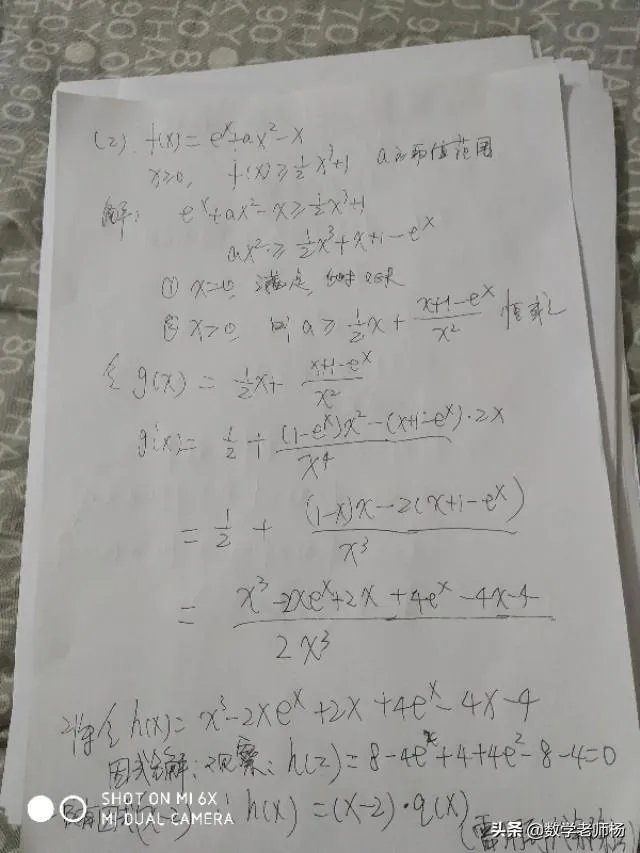 (2). f(x) = eˣ+ax²-x
x≥0, f(x) ≥ ½x³+1 a的取值范围
解: eˣ+ax²-x ≥ ½x³+1
ax² ≥ ½x³+x+1-eˣ
① x=0, 满足, 此时 a∈R
② x>0, 则 a ≥ ½x + (x+1-eˣ)/x² 恒成立
令 g(x) = ½x + (x+1-eˣ)/x²
g'(x) = ½ + ((1-eˣ)x²-(x+1-eˣ)·2x)/x⁴
= ½ + ((1-x)x-2(x+1-eˣ))/x³
= (x³-2xeˣ+2x+4eˣ-4x-4)/2x³
令 h(x) = x³-2xeˣ+2x+4eˣ-4x-4
因式分解: 观察: h(2) = 8-4e²+4+4e²-8-4=0
h(x) = (x-2)·q(x)
SHOT ON MI 6X
MI DUAL CAMERA
头条 @数学老师杨